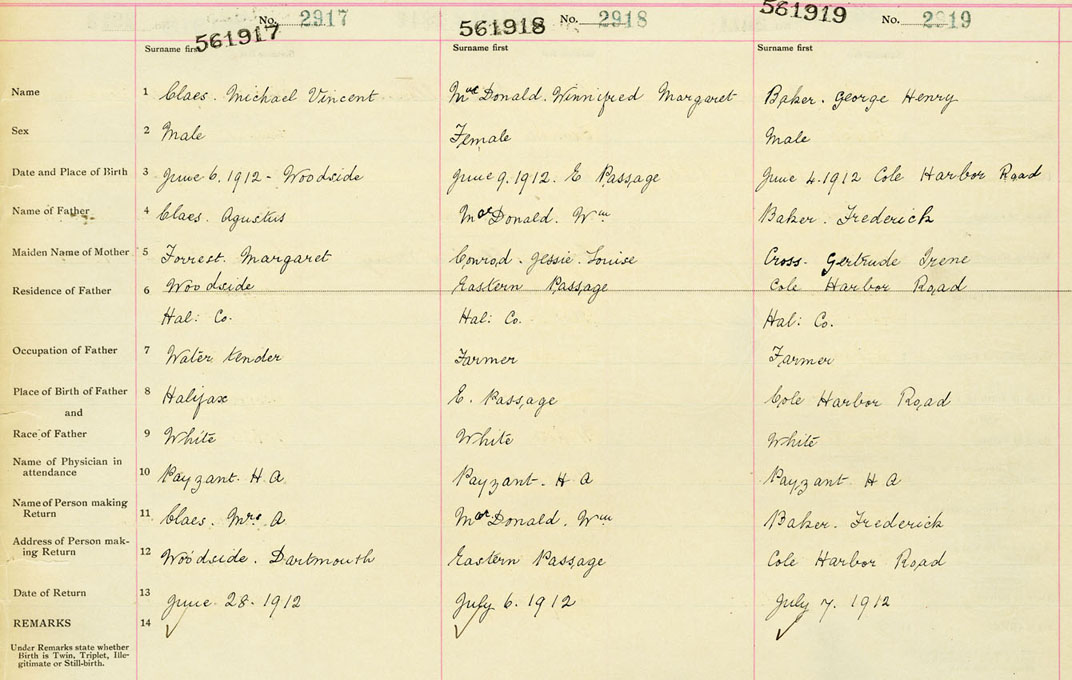 No. 2917 No. 2918 No. 2919
561917 561918 561919
Surname first Surname first Surname first
Name 1 Claes. Michael Vincent McDonald. Winnifred Margaret Baker. George Henry
Sex 2 Male Female Male
Date and Place of Birth 3 June 6. 1912 - Woodside June 9. 1912. E Passage June 4. 1912 Cole Harbor Road
Name of Father 4 Claes. Agustus McDonald. Wm Baker. Frederick
Maiden Name of Mother 5 Forrest. Margaret Conrod. Jessie. Louise Cross. Gertrude Irene
Residence of Father 6 Woodside Eastern Passage Cole Harbor Road
Hal: Co. Hal: Co. Hal: Co.
Occupation of Father 7 Water tender Farmer Farmer
Place of Birth of Father 8 Halifax E. Passage Cole Harbor Road
and
Race of Father 9 White White White
Name of Physician in
attendance 10 Payzant. H A Payzant. H A Payzant. H A
Name of Person making
Return 11 Claes. Mrs A McDonald. Wm Baker. Frederick
Address of Person mak-
ing Return 12 Woodside. Dartmouth Eastern Passage Cole Harbor Road
Date of Return 13 June. 28. 1912 July 6. 1912 July 7. 1912
REMARKS 14
Under Remarks state whether
Birth is Twin, Triplet, Ille-
gitimate or Still-birth.